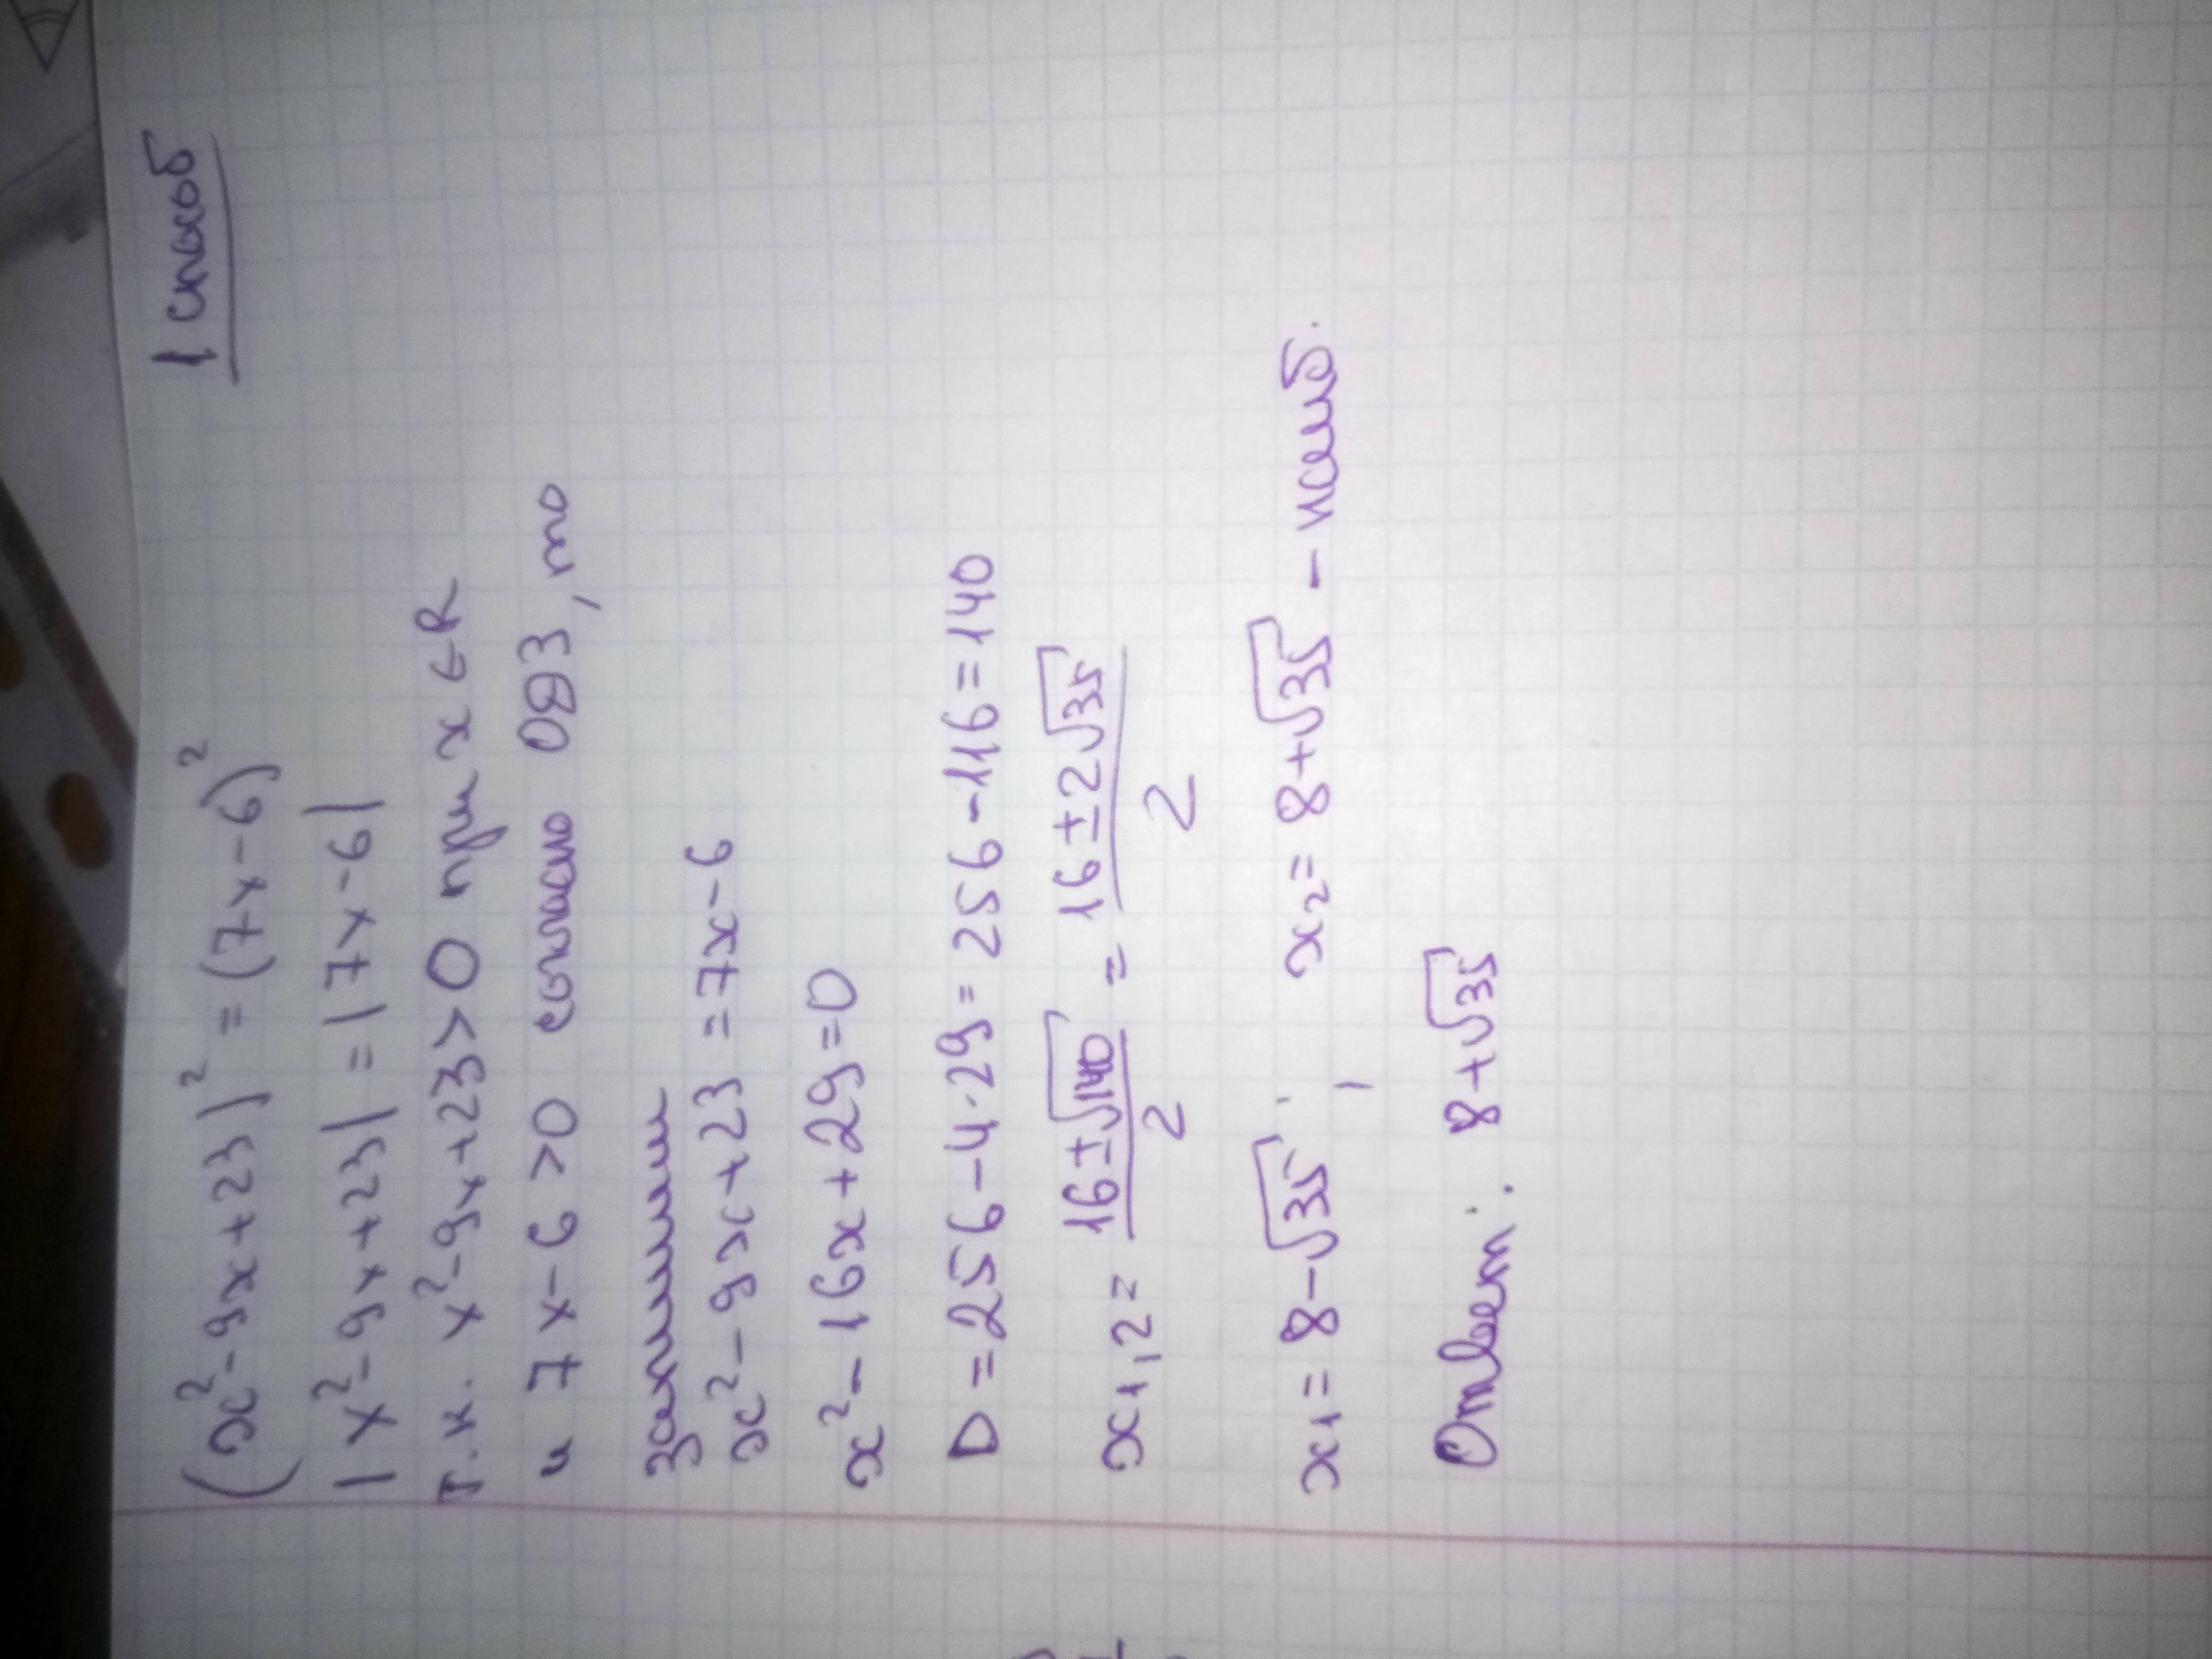 1 способ
(x² - 9x + 23)² = (7x - 6)²
|x² - 9x + 23| = |7x - 6|
т.к. x² - 9x + 23 > 0 при x ∈ R
и 7x - 6 > 0 согласно ОДЗ, то
запишем
x² - 9x + 23 = 7x - 6
x² - 16x + 29 = 0
D = 256 - 4·29 = 256 - 116 = 140
x₁,₂ = (16 ± √140)/2 = (16 ± 2√35)/2
x₁ = 8 - √35 ; x₂ = 8 + √35 - наиб.
Ответ: 8 + √35